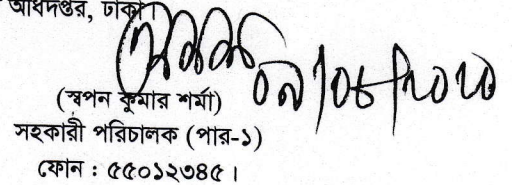 অধিদপ্তর, ঢাকা।
(স্বপন কুমার শর্মা)
সহকারী পরিচালক (পার-১)
ফোন : ৫৫০১২৩৪৫।